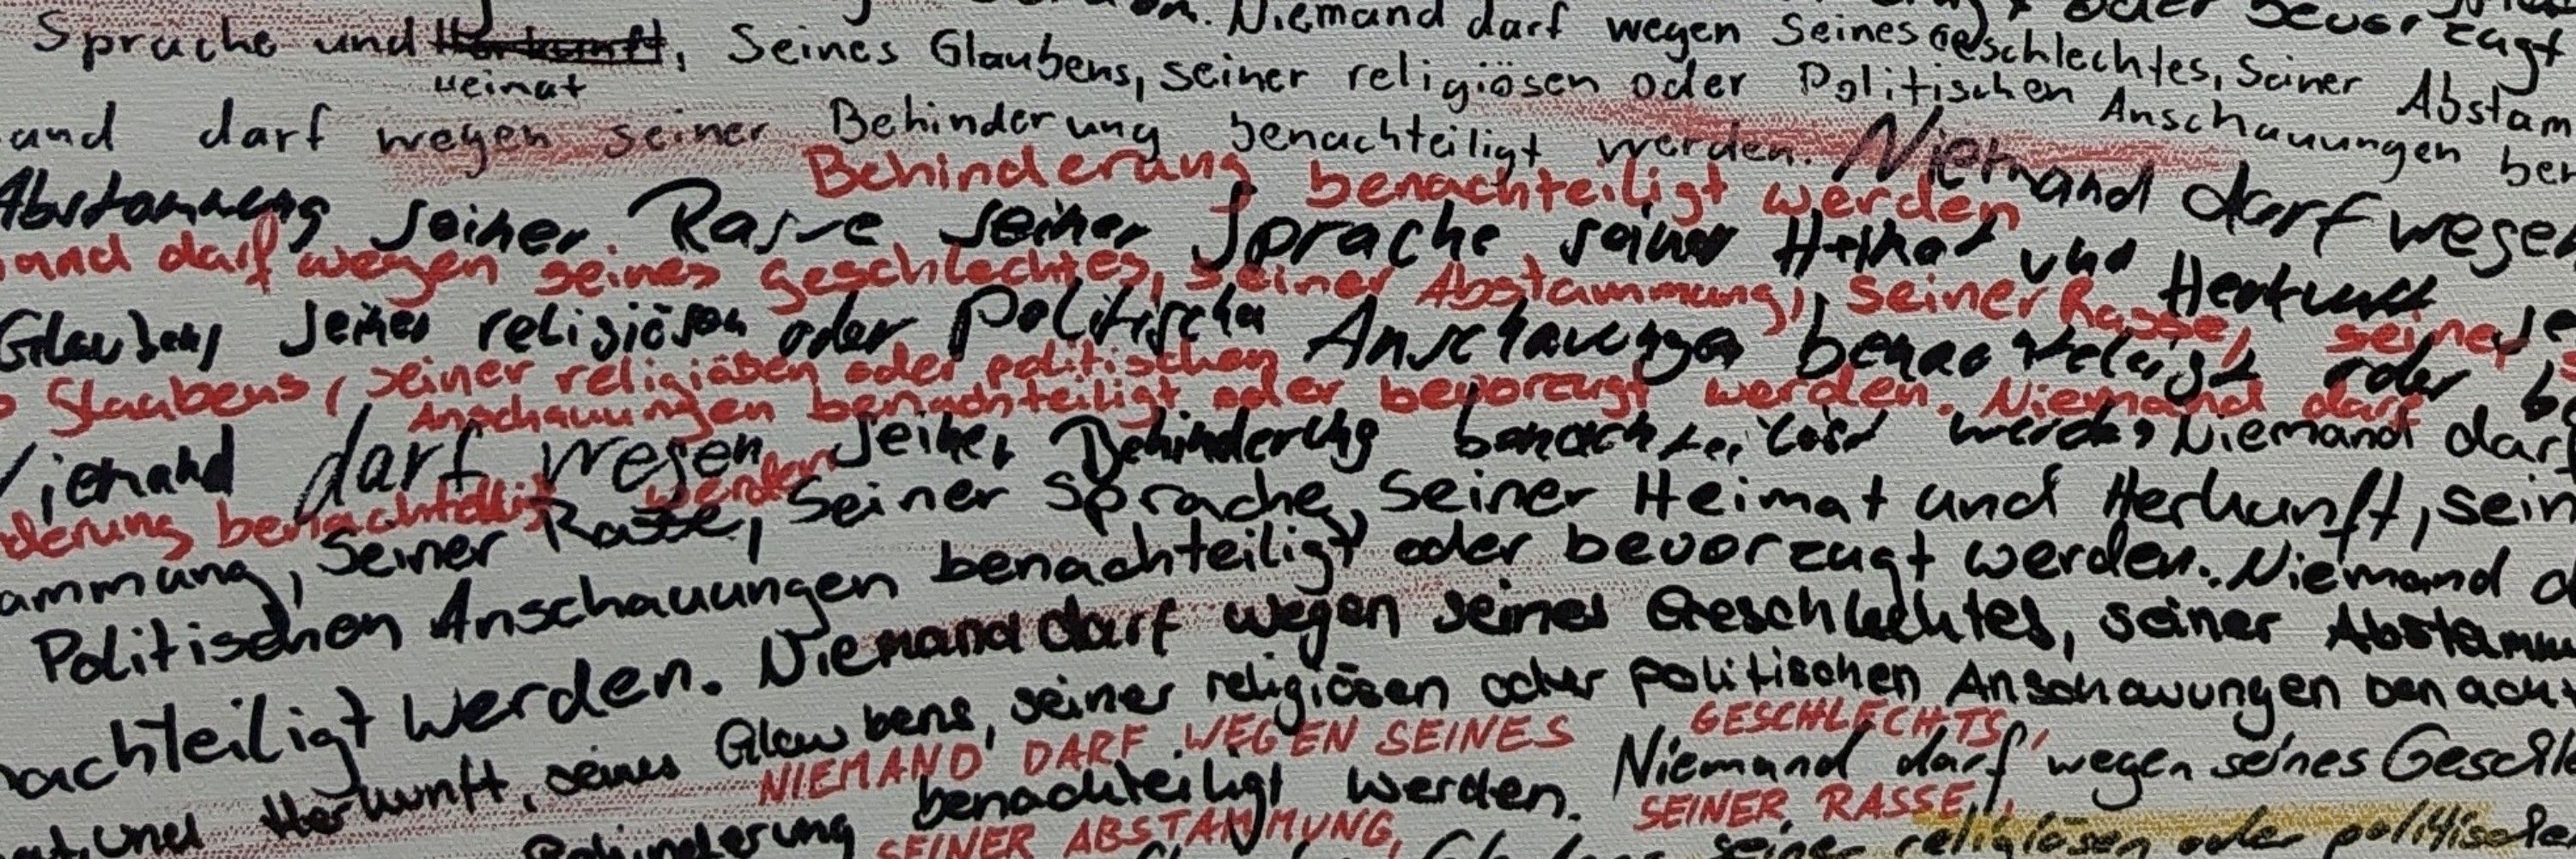 Sprache und Herkunft, Seines Glaubens, seiner religiösen oder Politischen Anschauungen
Heimat
Niemand darf wegen Seines Geschlechtes, Seiner Abstam
oder bevorzugt
and darf wegen seiner Behinderung benachteiligt werden. Niemand darf wegen
Behinderung benachteiligt werden
Abstammung seiner Rasse seiner Sprache seiner Heimat und Herkunft
and darf wegen seines geschlechtes, seiner Abstammung, seiner Rasse, seiner
Glaubens seiner religiösen oder Politischen Anschauungen benachteiligt oder
Glaubens, seiner religiösen oder politischen
Anschauungen benachteiligt oder bevorzugt werden. Niemand darf
Niemand darf wegen seiner Behinderung benachteiligt werden Niemand darf
derung benachteiligt werden
ammung, seiner Rasse, seiner Sprache, seiner Heimat und Herkunft, sein
Politischen Anschauungen benachteiligt oder bevorzugt werden. Niemand d
nachteiligt werden. Niemand darf wegen seines Geschlechtes, seiner Abstamm
und Herkunft, seines Glaubens, seiner religiösen oder politischen Anschauungen benacht
NIEMAND DARF WEGEN SEINES GESCHLECHTS,
Behinderung benachteiligt werden. Niemand darf wegen seines Geschle
SEINER ABSTAMMUNG, SEINER RASSE,
seiner religiösen oder politische